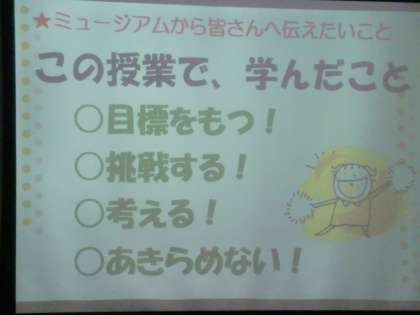 ★ミュージアムから皆さんへ伝えたいこと
この授業で、学んだこと
○目標をもつ！
○挑戦する！
○考える！
○あきらめない！